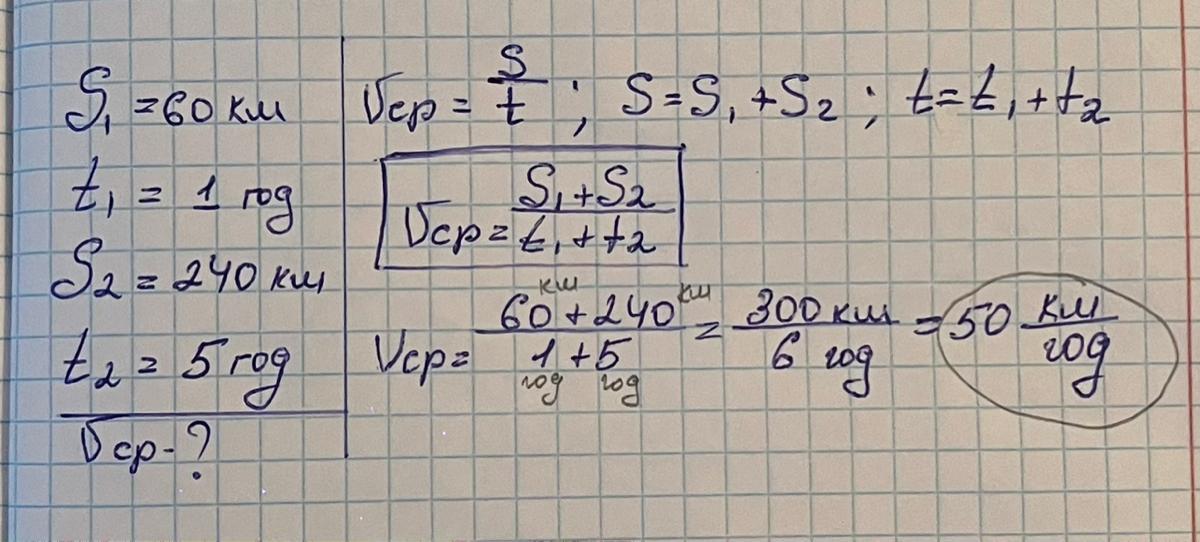 S₁ = 60 км
t₁ = 1 год
S₂ = 240 км
t₂ = 5 год
Vср - ?
Vср = S/t ; S = S₁ + S₂ ; t = t₁ + t₂
Vср = (S₁ + S₂)/(t₁ + t₂)
Vср = (60 км + 240 км)/(1 год + 5 год) = 300 км/6 год = 50 км/год